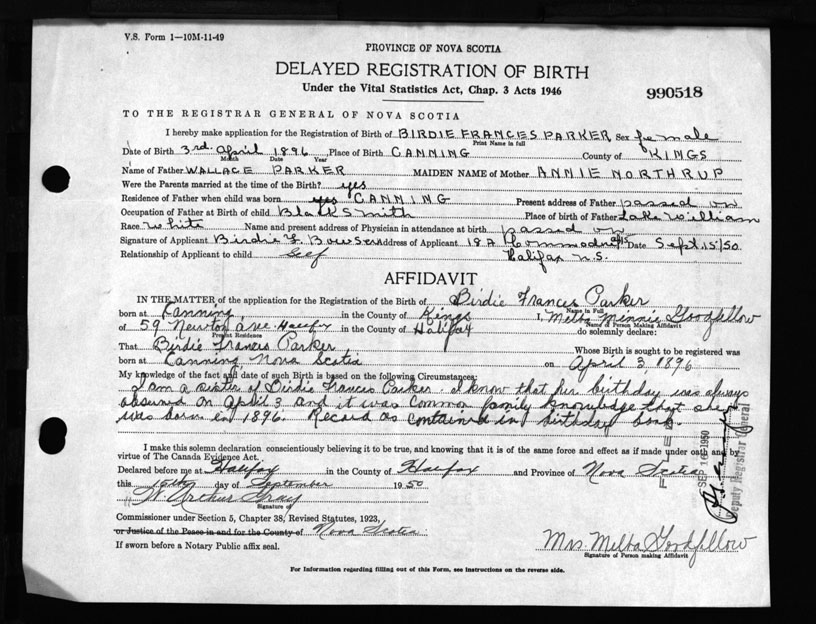 V.S. Form 1—10M-11-49
PROVINCE OF NOVA SCOTIA
DELAYED REGISTRATION OF BIRTH
Under the Vital Statistics Act, Chap. 3 Acts 1946
990518
TO THE REGISTRAR GENERAL OF NOVA SCOTIA
I hereby make application for the Registration of Birth of BIRDIE FRANCES PARKER Sex female
Print Name in full
Date of Birth 3rd. April 1896 Place of Birth CANNING County of KINGS
Month Date Year
Name of Father WALLACE PARKER MAIDEN NAME of Mother ANNIE NORTHRUP
Were the Parents married at the time of the Birth? yes
Residence of Father when child was born yes CANNING Present address of Father passed on
Occupation of Father at Birth of child BlackSmith Place of birth of Father Lake William
Race White Name and present address of Physician in attendance at birth passed on
Signature of Applicant Birdie F. Bowser Address of Applicant 18A Commodore Date Sept. 15/50
Relationship of Applicant to child Self Halifax N.S.
AFFIDAVIT
IN THE MATTER of the application for the Registration of the Birth of Birdie Frances Parker
Name in Full
born at Canning, in the County of Kings I, Melba Minnie Goodfellow
Name of Person Making Affidavit
of 59 Newton Ave. Halifax in the County of Halifax do solemnly declare:
Present Residence
That Birdie Frances Parker Whose Birth is sought to be registered was
born at Canning Nova Scotia on April 3, 1896
My knowledge of the fact and date of such Birth is based on the following Circumstances:
I am a sister of Birdie Frances Parker. I know that her birthday was always
observed on April 3 and it was common family knowledge that she
was born in 1896. Record as contained in birthday book.
I make this solemn declaration conscientiously believing it to be true, and knowing that it is of the same force and effect as if made under oath and by
virtue of The Canada Evidence Act.
Declared before me at Halifax in the County of Halifax and Province of Nova Scotia
this 16th day of September 1950
W. Arthur Gray
Signature of
Commissioner under Section 5, Chapter 38, Revised Statutes, 1923,
or Justice of the Peace in and for the County of Nova Scotia
If sworn before a Notary Public affix seal.
Mrs. Melba Goodfellow
Signature of Person making Affidavit
For Information regarding filling out of this Form, see instructions on the reverse side.
SEP 16 1950
Deputy Registrar General